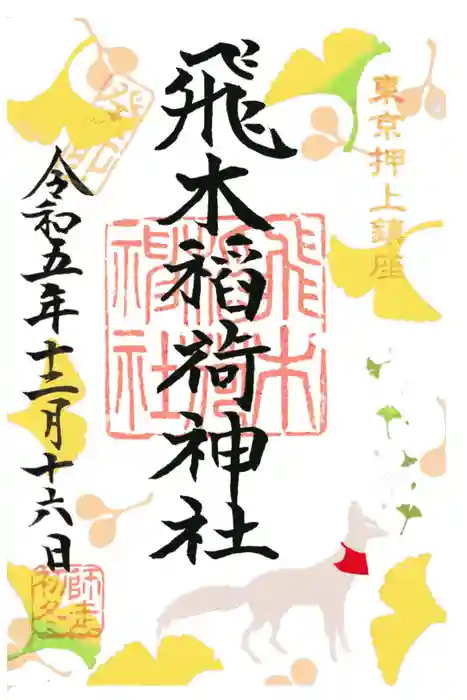 東京押上鎮座
飛木稲荷神社
飛木
稲荷
神社
令和五年十二月十六日
師走
初冬